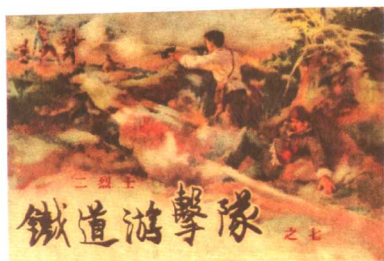 二烈士
鐵道游擊隊
之七